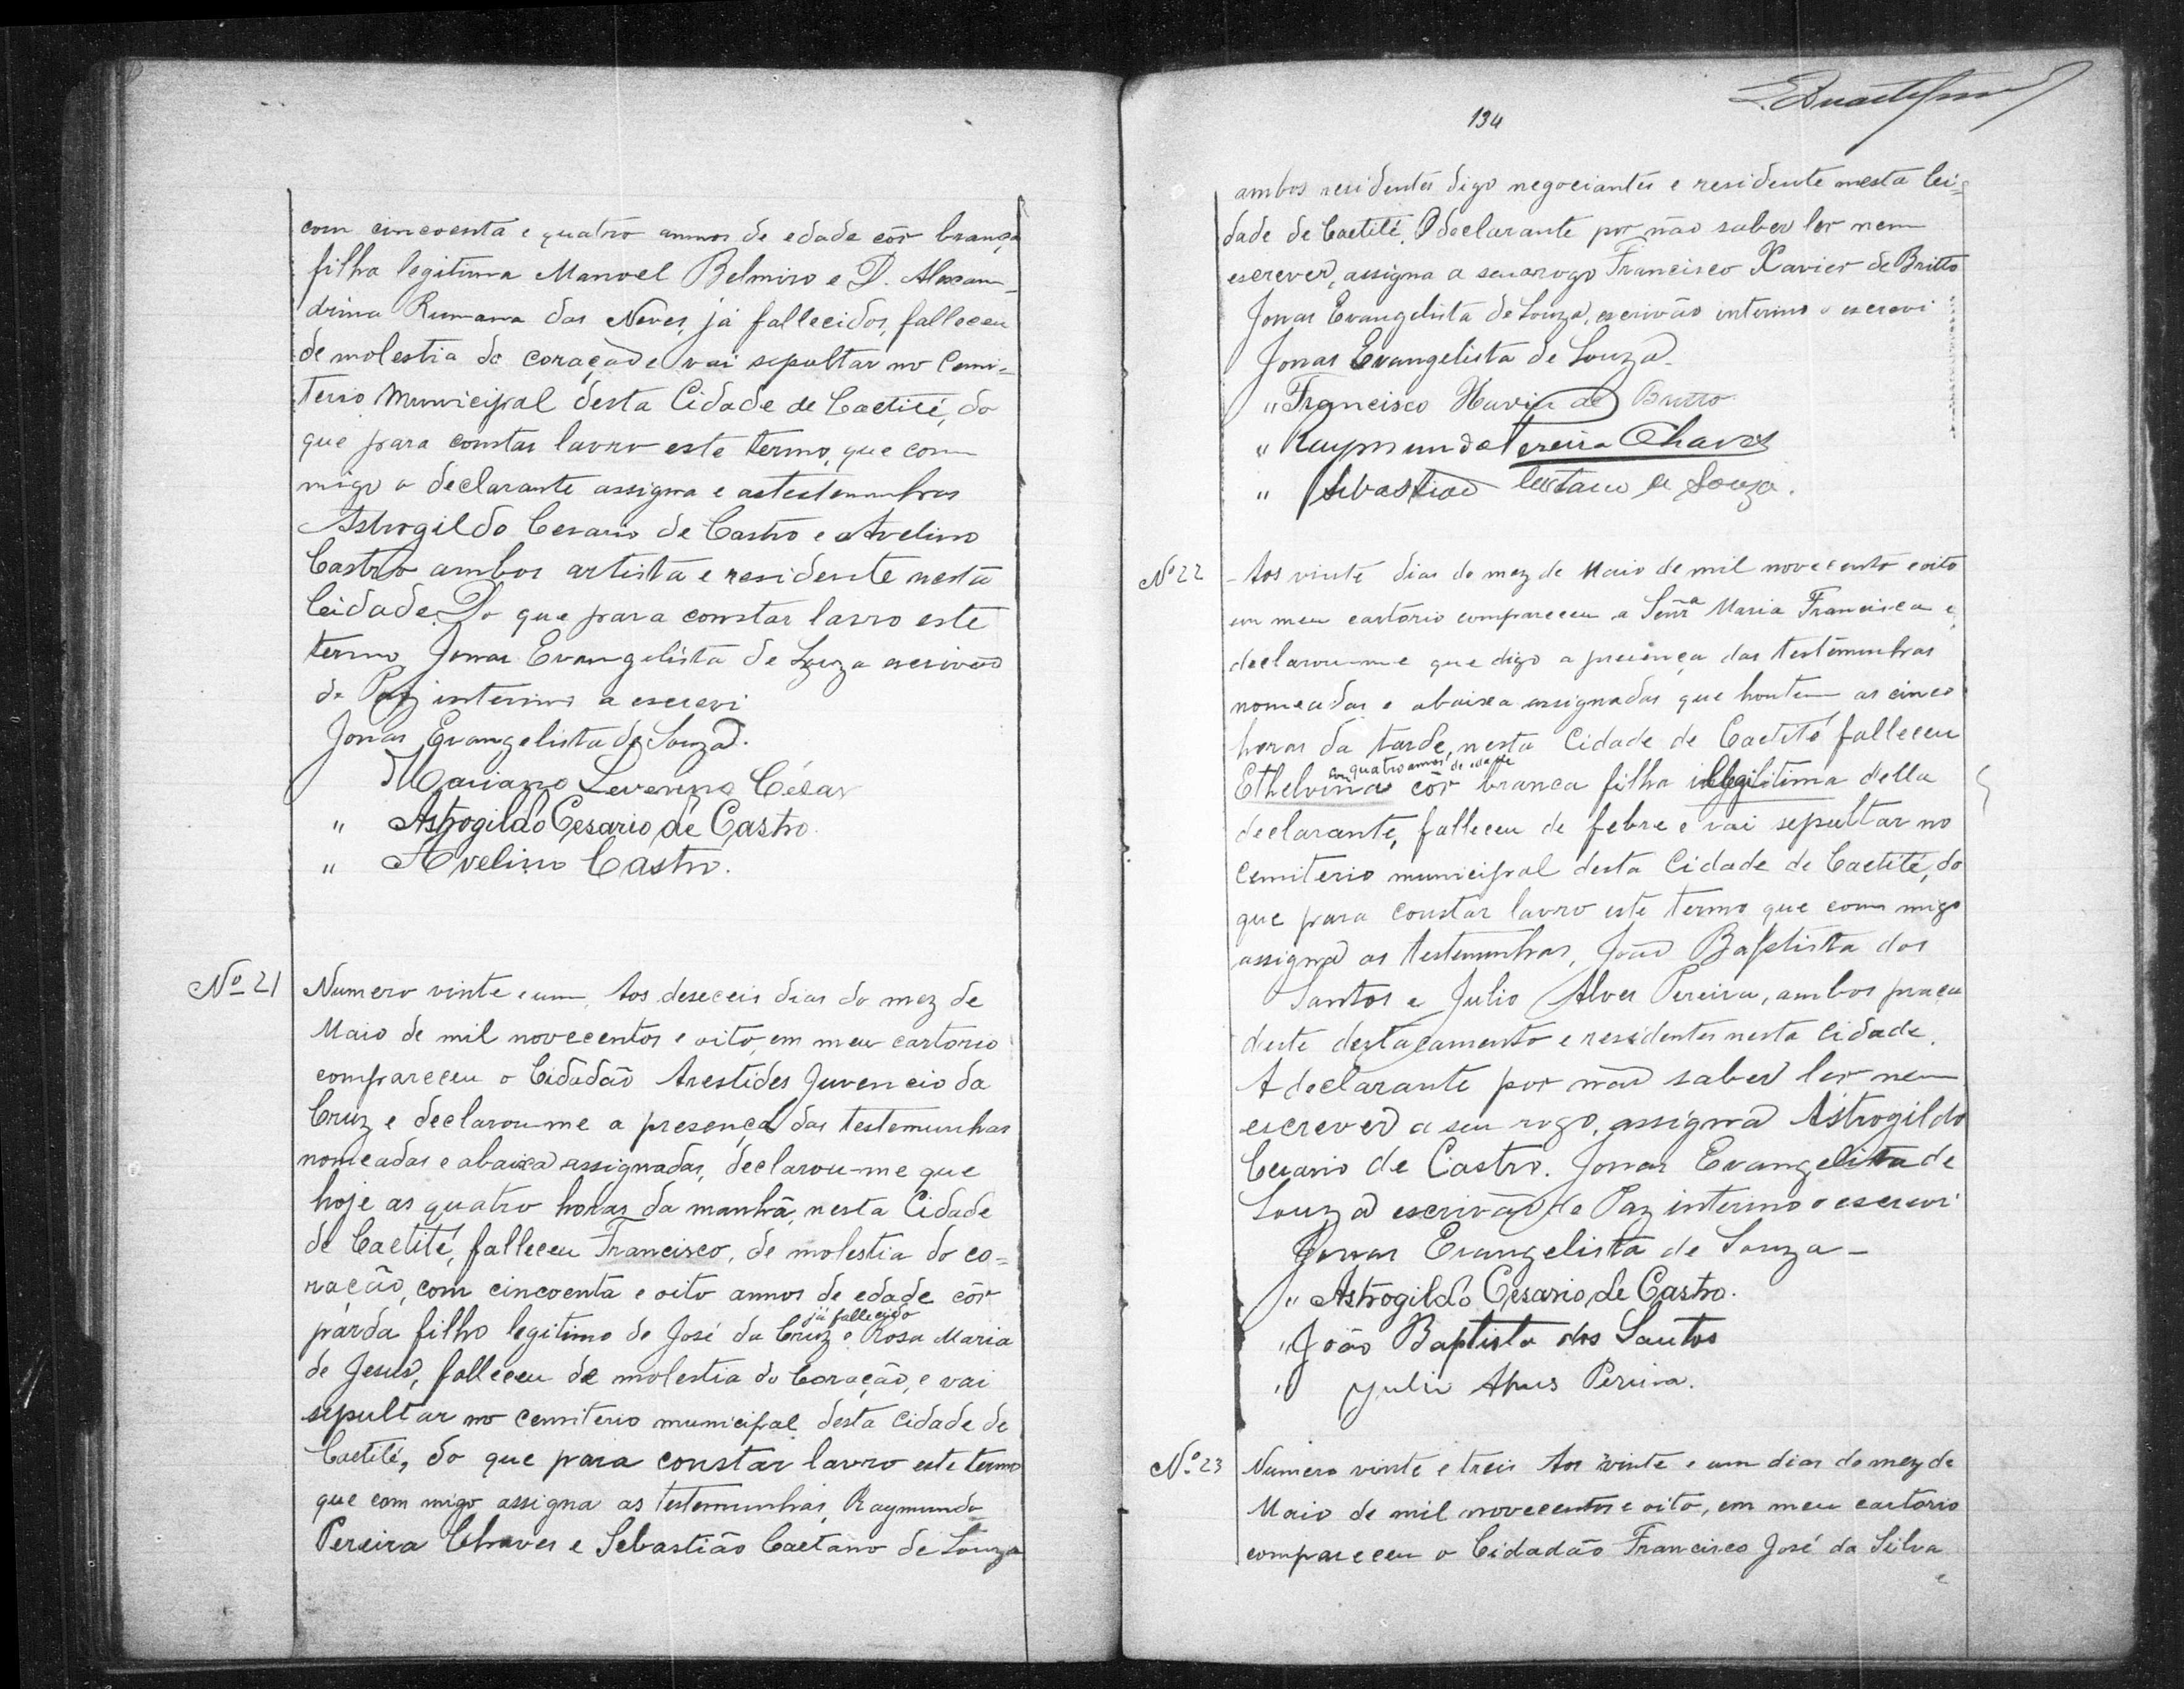 com cincoenta e quatro annos de edade côr branca
filha legitima Manoel Belmiro e D. Alexan-
drina Rumana das Neves, já fallecidos, falleceu
de molestia do coração e vai sepultar no Cemi-
terio Municipal desta Cidade de Caetité, do
que para constar lavro este termo, que com
migo o declarante assigna e as testemunhas
Astrogildo Cesario de Castro e Avelino
Castro ambos artista e residente nesta
Ceidade. Do que para constar lavro este
termo Jonas Evangelista de Souza escrivão
de Paz interino a escrevi
Jonas Evangelista de Souza.
Mariano Severino César
" Astrogildo Cesario de Castro.
" Avelino Castro.
Nº 21 Numero vinte e um. Aos deseceis dias do mez de
Maio de mil novecentos e oito, em meu cartorio
compareceu o Cidadão Arestides Juvencio da
Cruz e declarou-me a presença das testemunhas
nomeadas e abaixa assignadas, declarou-me que
hoje as quatro horas da manhã, nesta Cidade
de Caetité, falleceu Francisco, de molestia do co=
ração, com cincoenta e oito annos de edade côr
já fallecido
parda filho legitimo de José da Cruz e Rosa Maria
de Jesus, falleceu de molestia do Coração, e vai
sepultar no cemiterio municipal desta Cidade de
Caetité, do que para constar lavro este termo
que com migo assigna as testemunhas, Raymundo
Pereira Chaves e Sebastião Caetano de Souza
134
ambos residentes digo negociantes e residente nesta Cei=
dade de Caetité. O declarante por não saber ler nem
escrever, assigna a seu arogo Francisco Xavier de Britto
Jonas Evangelista de Souza, escrivão interino o escrevi
Jonas Evangelista de Souza
" Francisco Xavier de Britto
" Raymundo Pereira Chaves
" Sebastião Caetano de Souza.
Nº 22 Aos vinte dias do mez de Maio de mil novecento e oito
em meu cartorio compareceu a Senrª Maria Francisca e
declarou-me que digo a presença das testemunhas
nomeadas e abaixa assignadas que hontem as cinco
horas da tarde, nesta Cidade de Caetité falleceu
com quatro annos de edade
Ethelvina côr branca filha illegitima della
declarante, falleceu de febre e vai sepultar no
Cemiterio municipal desta Cidade de Caetité, do
que para constar lavro este termo que com migo
assigna as testemunhas, João Baptista dos
Santos e Julio Alves Pereira, ambos praça
deste destacamento e residentes nesta Cidade.
A declarante por não saber ler nem
escrever a seu rogo, assigna Astrogildo
Cesario de Castro. Jonas Evangelista de
Souza escrivão de Paz interino o escrevi
Jonas Evangelista de Souza -
" Astrogildo Cesario de Castro.
" João Baptista dos Santos
" Julio Alves Pereira.
Nº 23 Numero vinte e treis Aos vinte e um dias do mez de
Maio de mil novecentos e oito, em meu cartorio
compareceu o Cidadão Francisco José da Silva
e